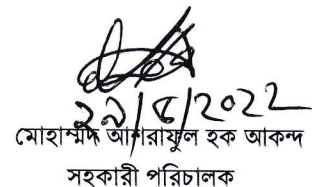 ২৯/৪/2022
মোহাম্মদ আশরাফুল হক আকন্দ
সহকারী পরিচালক